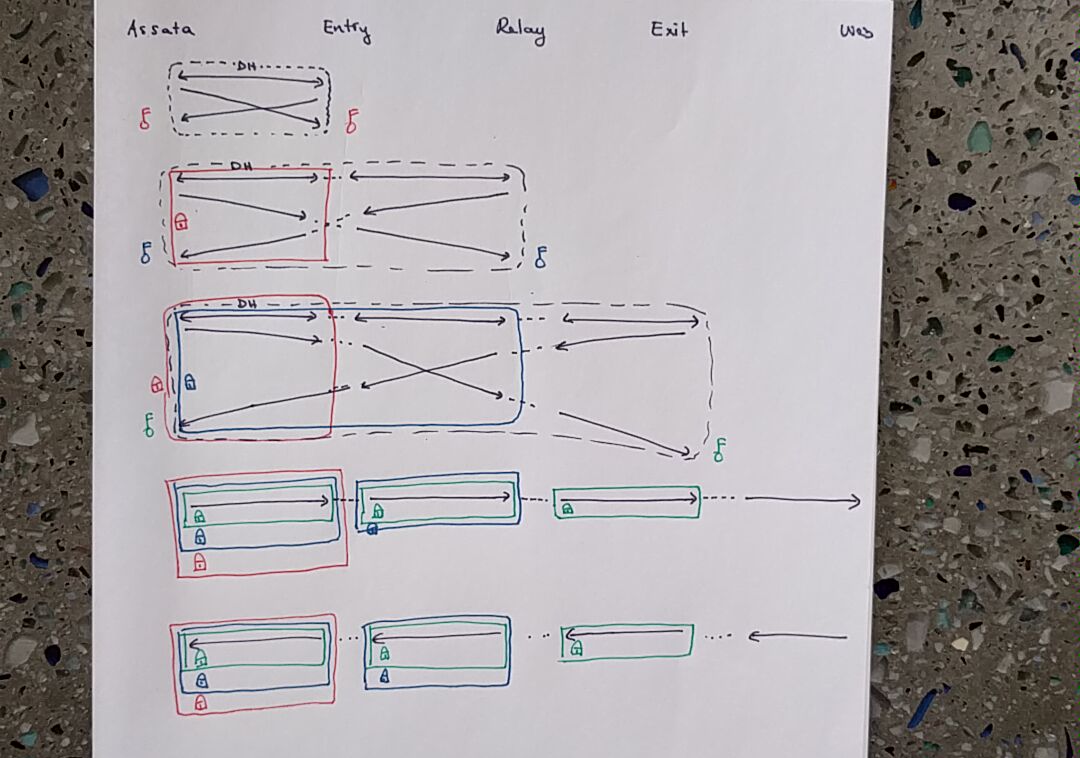 Assata Entry Relay Exit Web
DH
DH
DH